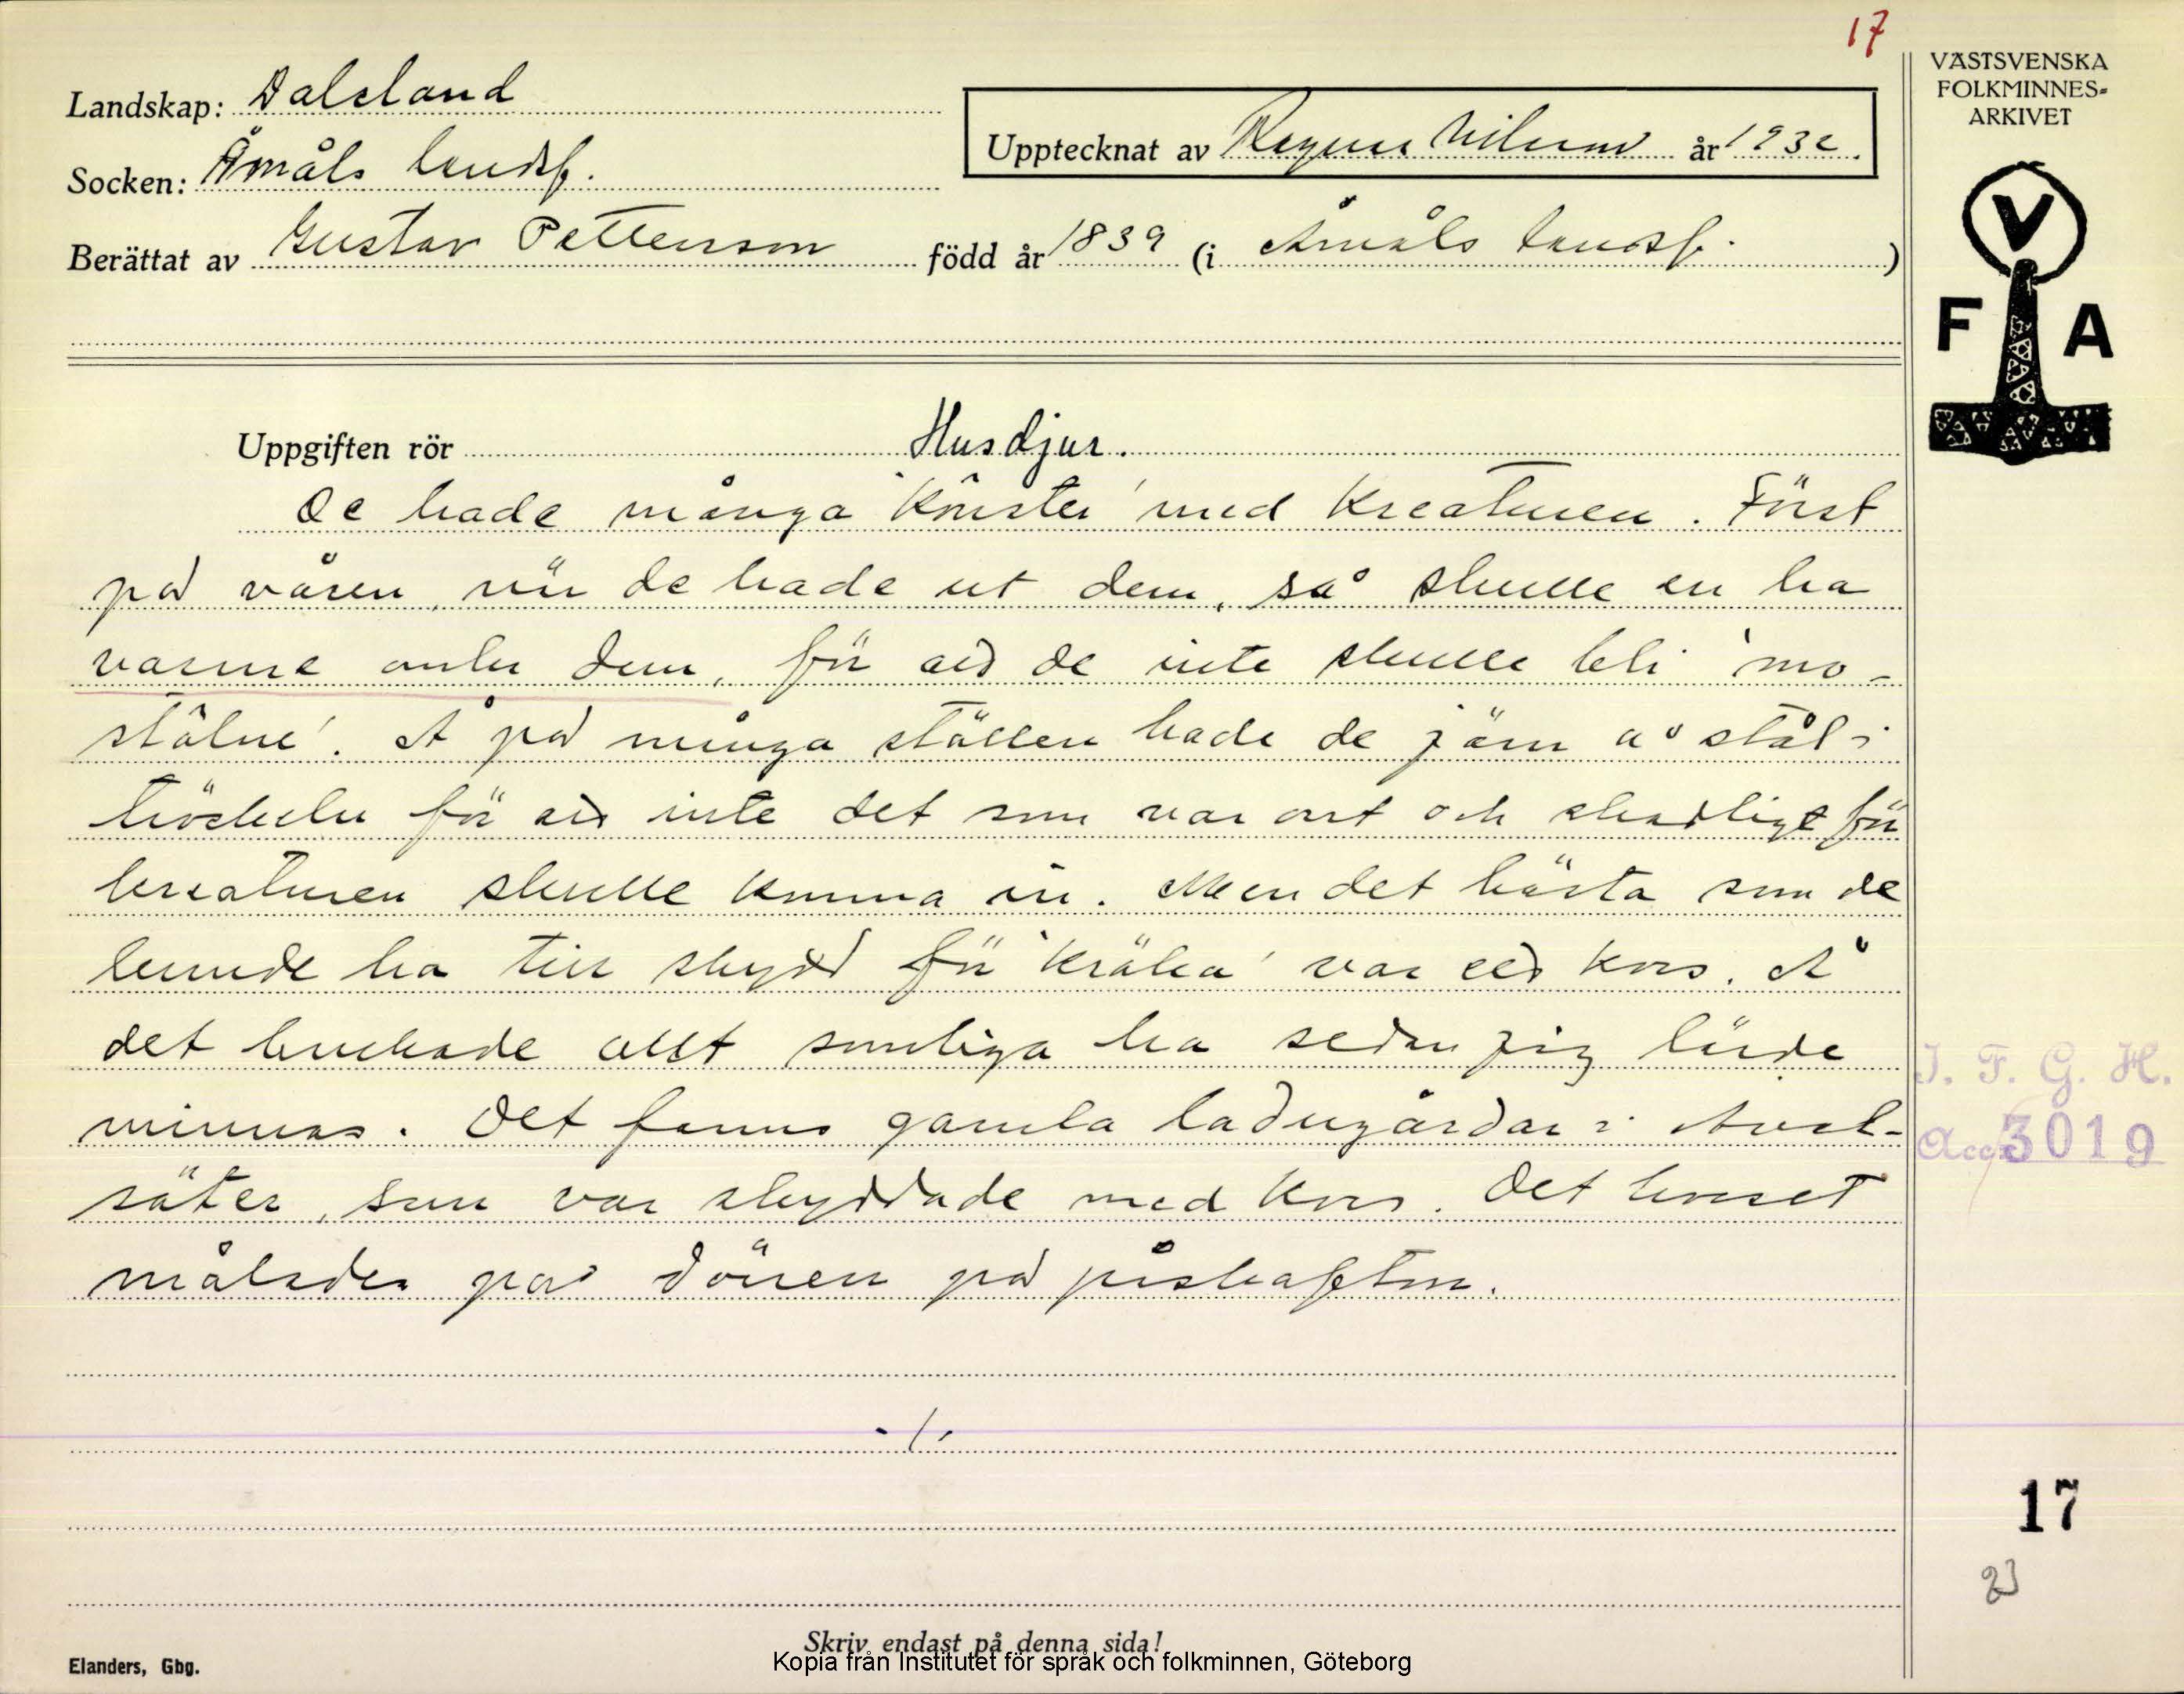 17
VÄSTSVENSKA
FOLKMINNES-
ARKIVET
Landskap: Dalsland
Upptecknat av Ragnar Nilsson år 1932.
Socken: Åmåls landsf.
Berättat av Gustav Pettersson född år 1839 (i Åmåls landsf. )
V
F A
Uppgiften rör Husdjur.
De hade många 'kônster' med kreaturen. Först
på våren, när de hade ut dem, så skulle en ha
varme under dem, för att de inte skulle bli 'mo-
stålne'. Å på många ställen hade de järn å stål i
tröskeln för att inte det som var ont och skadligt för
kreaturen skulle komma in. Men det bästa som de
kunde ha till skydd för 'kräka' var ett kors. Å
det brukade allt somliga ha sedan jag lärde
minnas. Det fanns gamla ladugårdar i
säter, som var skyddade med kors. Det korset
målades på dörren på påskafton.
I. F. G. H.
Acc. 3019
-/-
17
23
Skriv endast på denna sida!
Kopia från Institutet för språk och folkminnen, Göteborg
Elanders, Gbg.